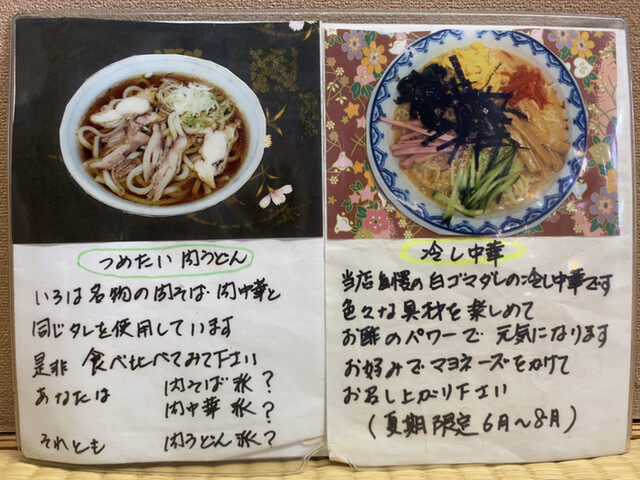 つめたい肉うどん
いろは名物の肉そば・肉中華と
同じタレを使用しています
是非 食べ比べてみて下さい
あなたは 肉そば派?
肉中華派?
それとも 肉うどん派?
冷し中華
当店自慢の白ゴマダレの冷し中華です
色々な具材を楽しめて
お酢のパワーで元気になります
お好みでマヨネーズをかけて
お召し上がり下さい
(夏期限定6月〜8月)